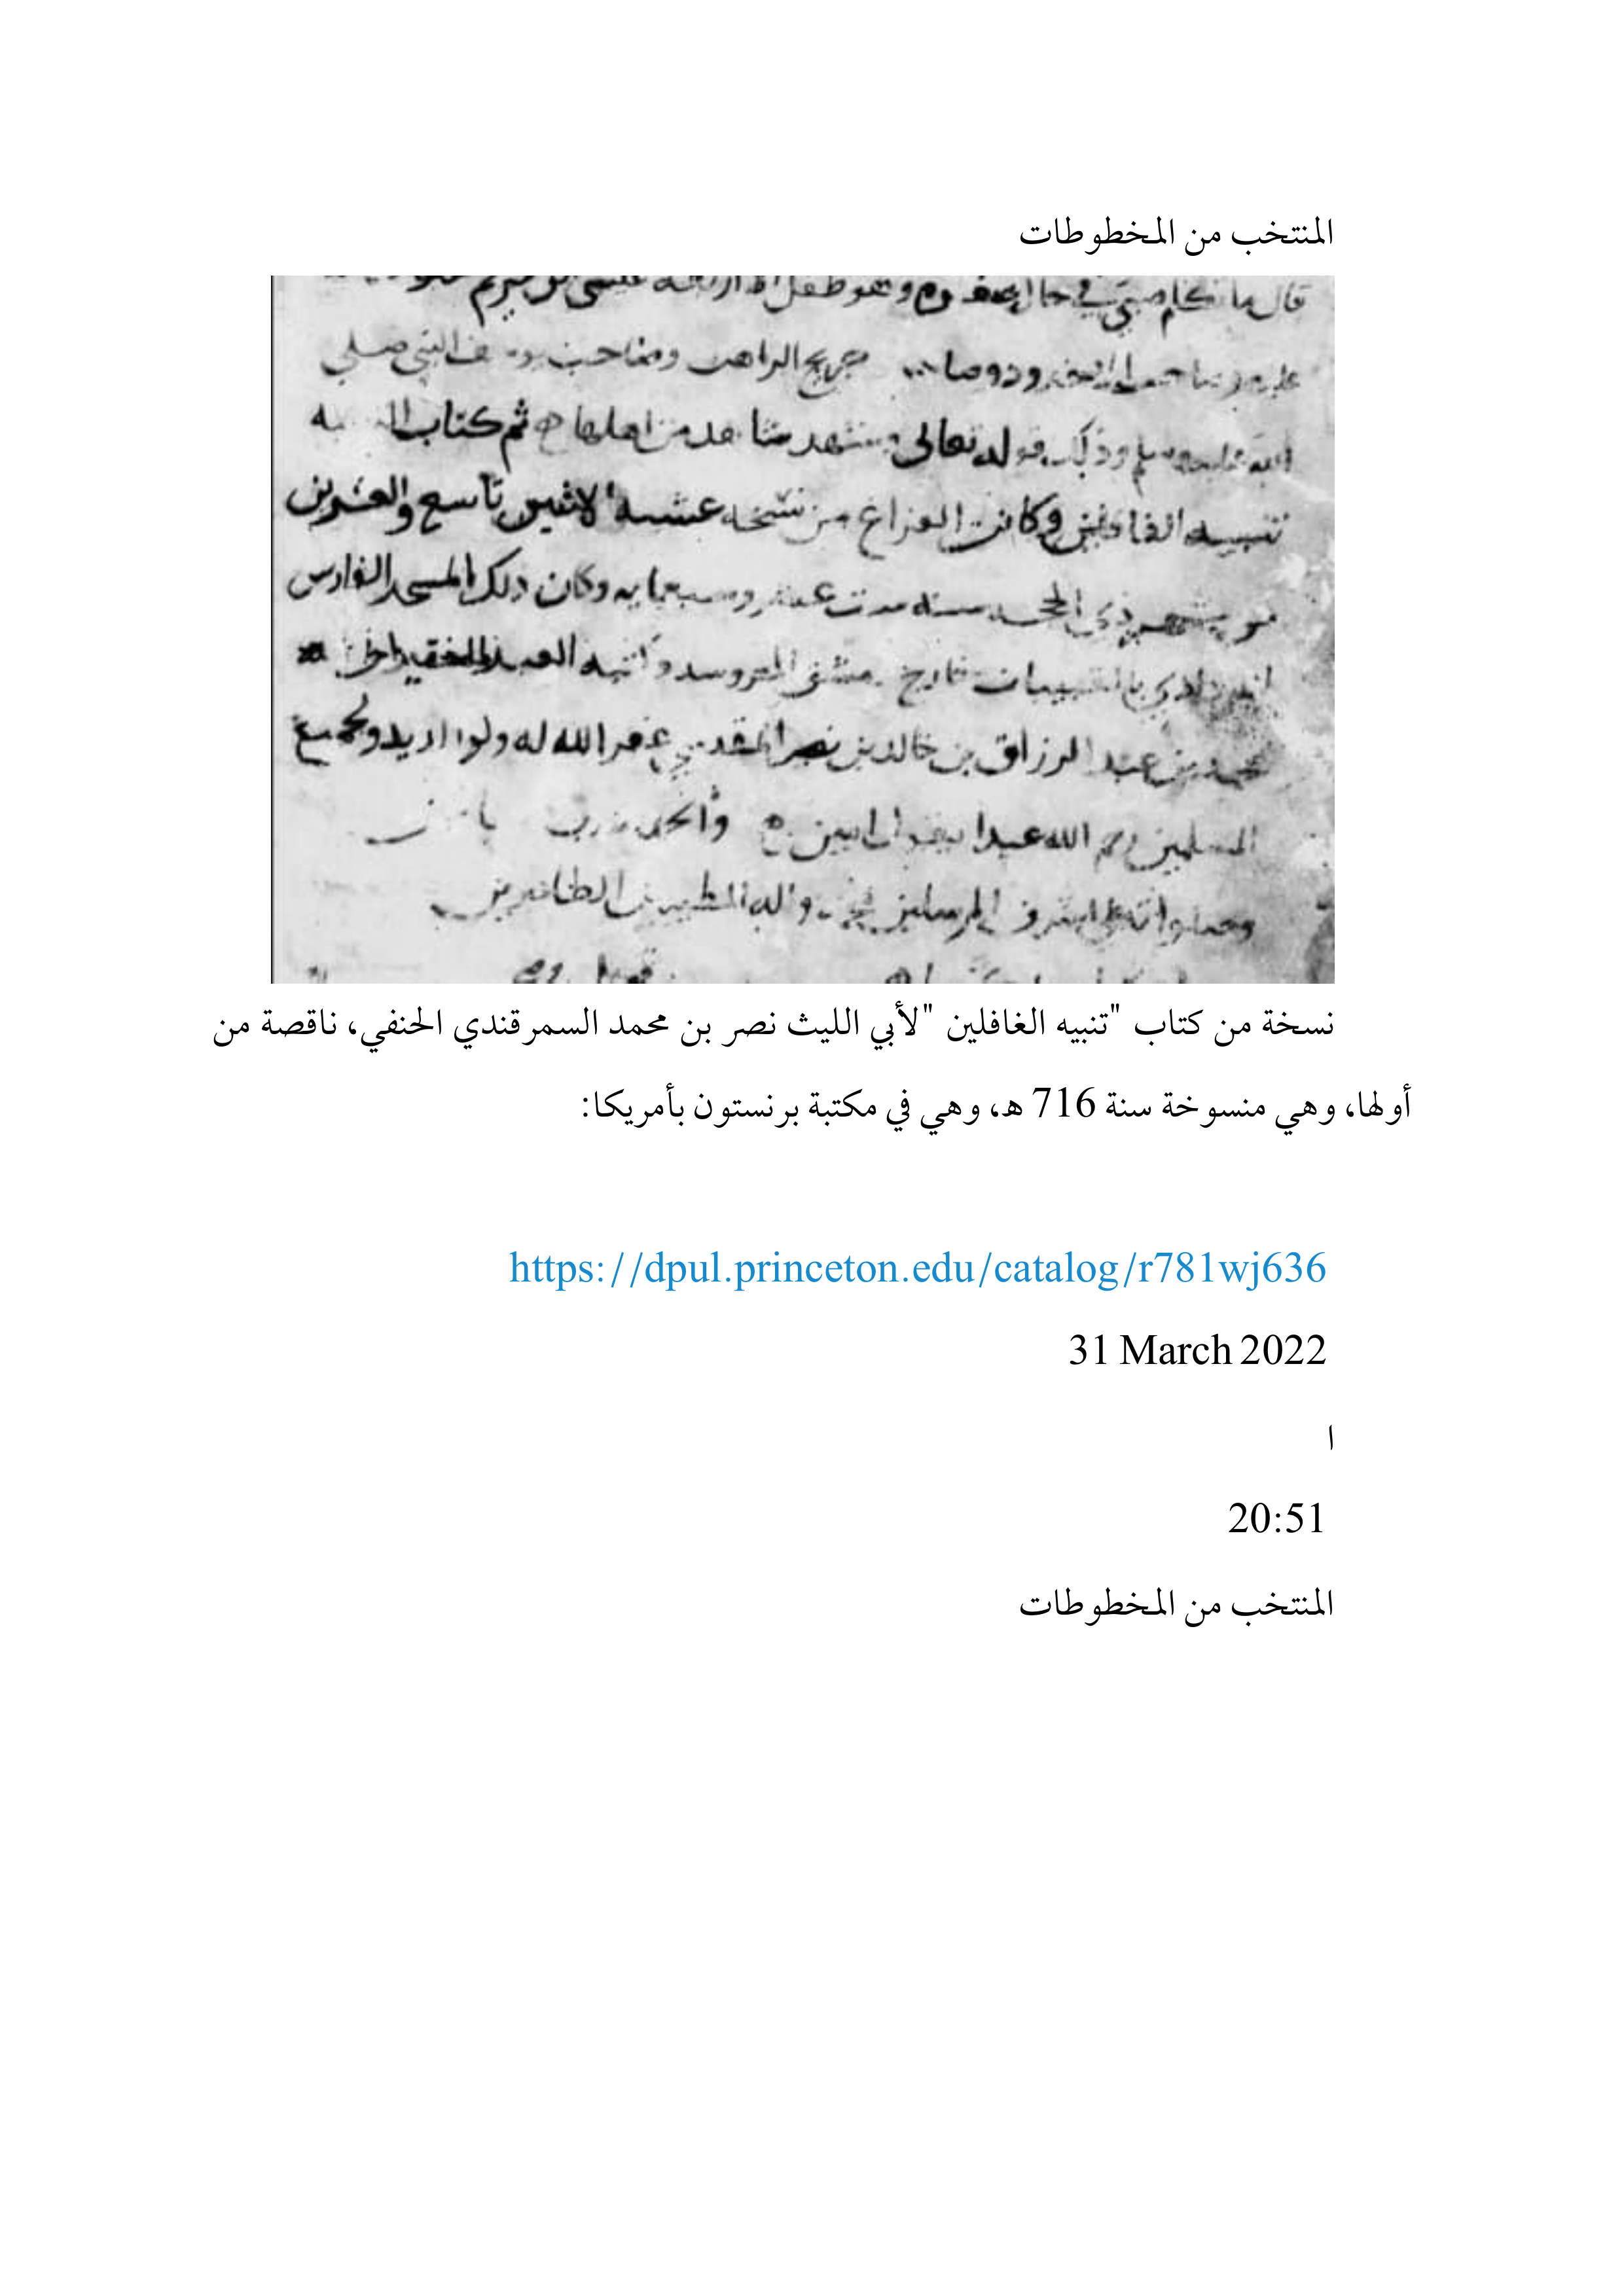 المنتخب من المخطوطات
قال ما تكلم صبي في حال وهو طفل الا اربعة عيسى بن مريم
جريج الراهب وصاحب يوسف النبي صلى
الله عليه وسلم وذلك قوله تعالى وشهد شاهد من اهلها تم كتاب
تنبيه الغافلين وكان الفراغ من نسخه عشية الاثنين تاسع والعشرين
من شهر ذي الحجه سنه ست عشر وسبعمايه وكان ذلك
بالقبيبات خارج دمشق المحروسه وكتبه العبد الفقير الى
محمد بن عبد الرزاق بن خالد بن نصر المقدسي غفر الله له ولوالديه ولجميع
المسلمين رحم الله عبدا يقول امين والحمد
المرسلين محمد واله الطيبين الطاهرين
نسخة من كتاب "تنبيه الغافلين "لأبي الليث نصر بن محمد السمرقندي الحنفي، ناقصة من
أولها، وهي منسوخة سنة 716 هـ، وهي في مكتبة برنستون بأمريكا:
https://dpul.princeton.edu/catalog/r781wj636
31 March 2022
ا
20:51
المنتخب من المخطوطات